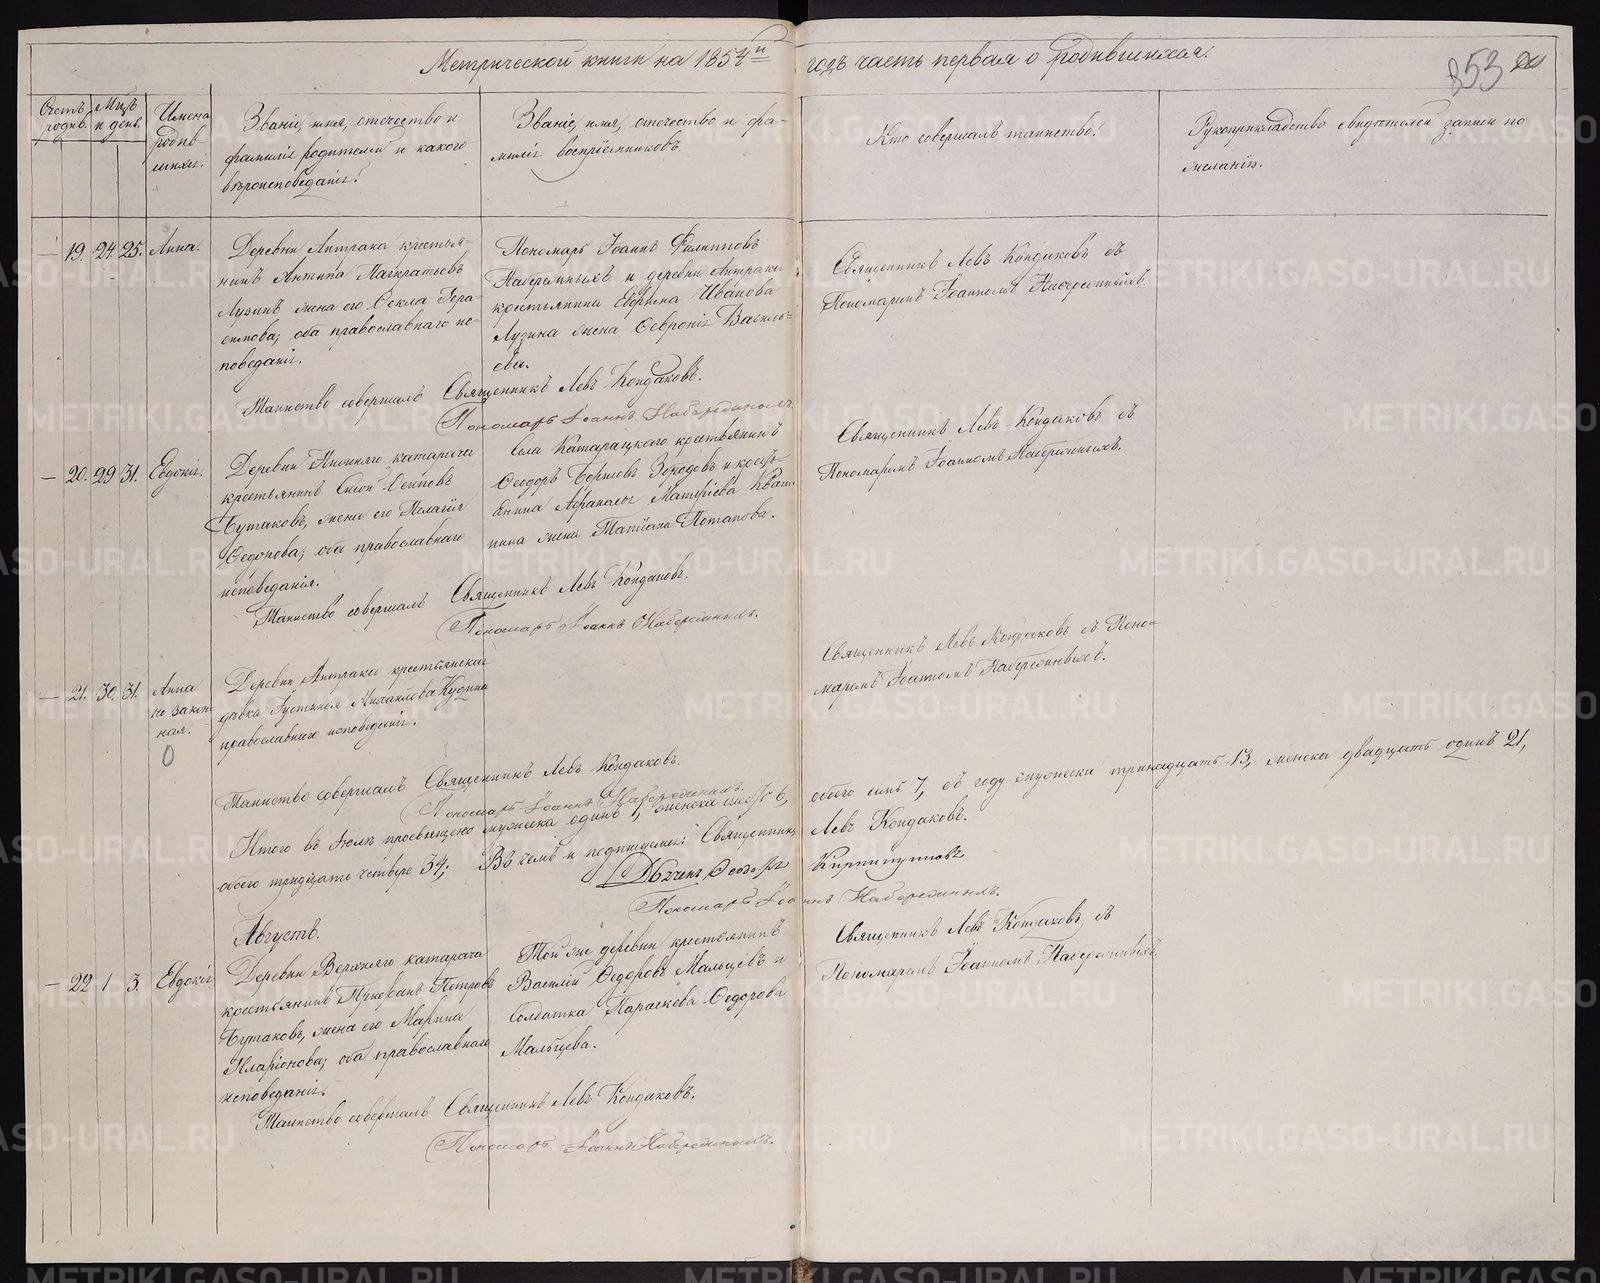 Метрической книги на 1854й годъ часть первая о родившихся.
853
Счетъ родив.
Мцъ и день.
Имена родив-
шихся.
Званіе, имя, отечество и
фамилія родителей и какого
вѣроисповеданія.
Званіе, имя, отечество и фа-
милія воспріемниковъ.
Кто совершалъ таинство.
Рукоприкладство свидѣтелей записи по
желанію.
19. 24. 25. Анна.
Деревни Антрака крестья-
нинъ Антипа Панкратьевъ
Лузинъ жена его Ѳекла Гера-
симова; оба православнаго ис-
поведанія.
Пономарь Іоаннъ Филипповъ
Набережныхъ и деревни Антрака
крестьянина Ефрема Иванова
Лузина жена Ѳевронія Василь-
ева.
Священникъ Левъ Кондаковъ съ
Пономаремъ Іоанномъ Набережныхъ.
Таинство совершалъ Священникъ Левъ Кондаковъ.
Пономарь Іоаннъ Набережныхъ.
20. 29 31. Евдокія.
Деревни Нижняго катарача
крестьянинъ Осиповъ
Бутаковъ, жена его Пелагія
Ѳедорова; оба православнаго
исповеданія.
Села Катарацкаго крестьянинъ
Ѳеодоръ Зородовъ и кресть-
янина Афанасья Матфіева
жена Татіана Потапова.
Священникъ Левъ Кондаковъ съ
Пономаремъ Іоанномъ Набережныхъ.
Таинство совершалъ Священникъ Левъ Кондаковъ.
Пономарь Іоаннъ Набережныхъ.
21. 30. 31. Анна
не закон-
ная.
Деревни Антрака крестьянская
дѣвка Іустинья Михайлова
православнаго исповеданія.
Священникъ Левъ Кондаковъ съ Поно-
маремъ Іоанномъ Набережныхъ.
Таинство совершалъ Священникъ Левъ Кондаковъ.
Пономарь Іоаннъ Набережныхъ.
Итого въ Іюлѣ просвѣщено мужеска одинъ 1, женска шесть 6, обоего семь 7, въ году мужеска тринадцать 13, женска двадцать одинъ 21,
обоего тридцать четыре 34; Въ чемъ и подпишемся: Священникъ Левъ Кондаковъ.
Дьяченъ Ѳеодоръ
Пономарь Іоаннъ Набережныхъ.
Августъ.
22 1 3. Евдокія
Деревни Верхняго катарача
крестьянинъ Трифонъ Петровъ
Бутаковъ, жена его Марина
Иларіонова; оба православнаго
исповеданія.
Той же деревни крестьянинъ
Василій Ѳедоровъ Мальцевъ и
солдатка Параскева Ѳедорова
Мальцева.
Священникъ Левъ Кондаковъ съ
Пономаремъ Іоанномъ Набережныхъ.
Таинство совершалъ Священникъ Левъ Кондаковъ.
Пономарь Іоаннъ Набережныхъ.
METRIKI.GASO-URAL.RU